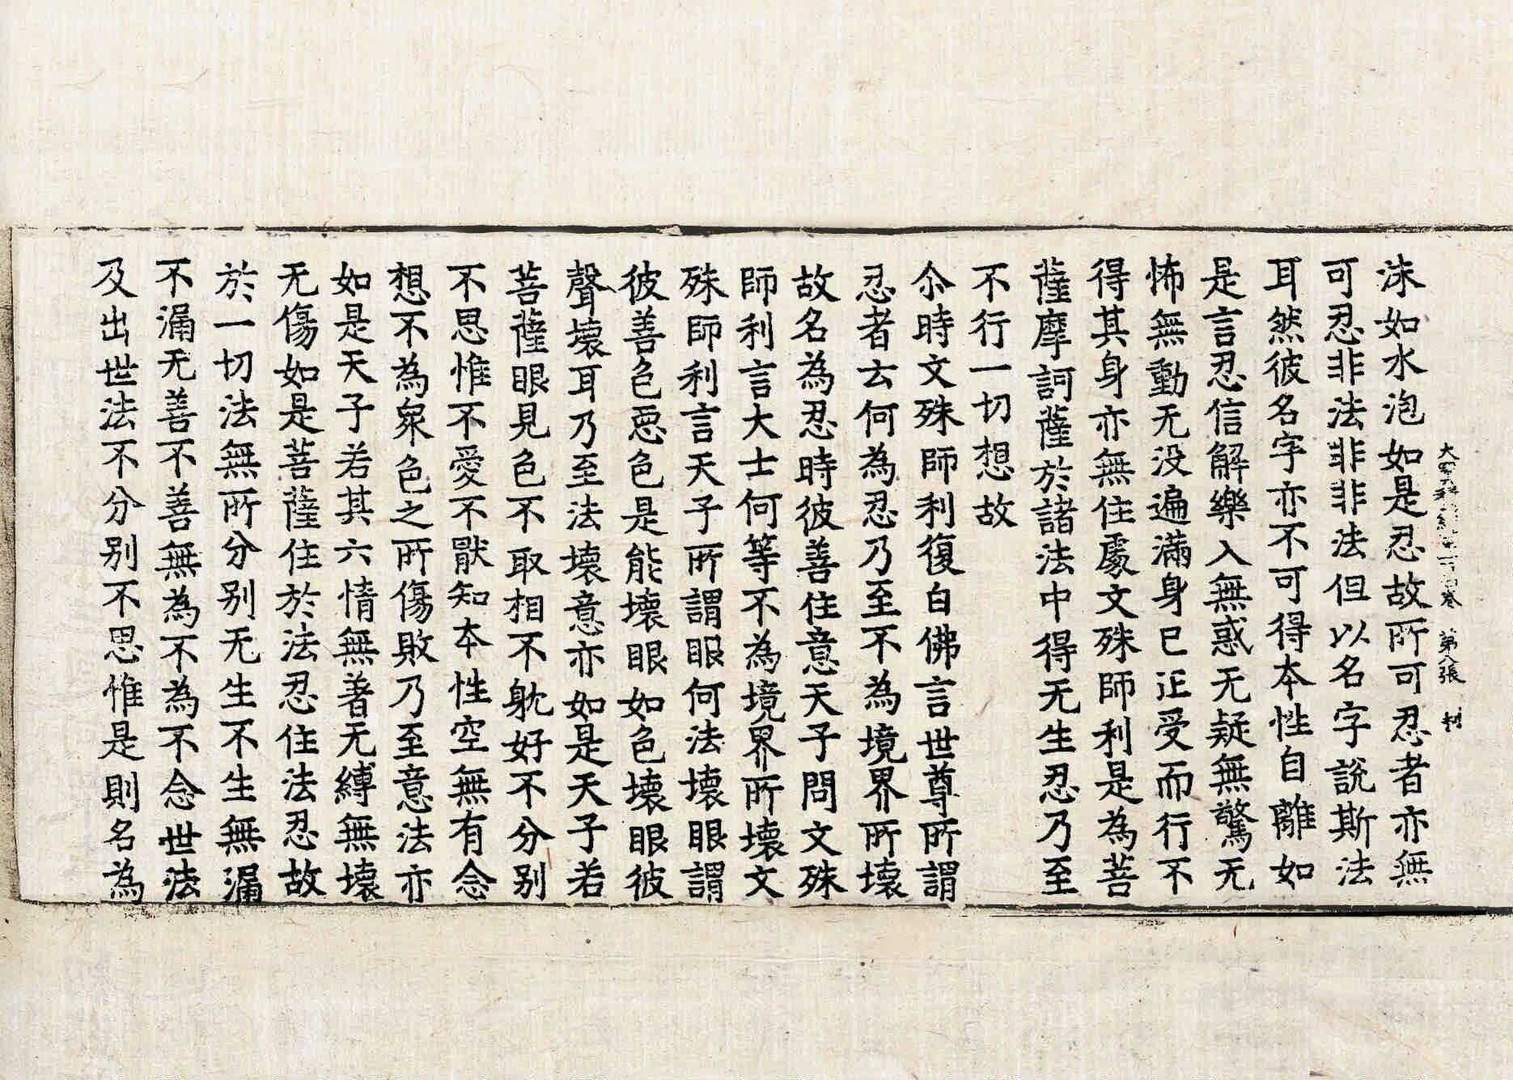 沫如水泡如是忍故所可忍者亦無
可忍非法非非法但以名字說斯法
耳然彼名字亦不可得本性自離如
是言忍信解樂入無惑无疑無驚无
怖無動无没遍滿身已正受而行不
得其身亦無住處文殊師利是為菩
薩摩訶薩於諸法中得无生忍乃至
不行一切想故
尒時文殊師利復白佛言世尊所謂
忍者云何為忍乃至不為境界所壞
故名為忍時彼善住意天子問文殊
師利言大士何等不為境界所壞文
殊師利言天子所謂眼何法壞眼謂
彼善色惡色是能壞眼如色壞眼彼
聲壞耳乃至法壞意亦如是天子若
菩薩眼見色不取相不躭好不分別
不思惟不愛不猒知本性空無有念
想不為衆色之所傷敗乃至意法亦
如是天子若其六情無著无縛無壞
无傷如是菩薩住於法忍住法忍故
於一切法無所分别无生不生無漏
不漏无善不善無為不為不念世法
及出世法不分别不思惟是則名為